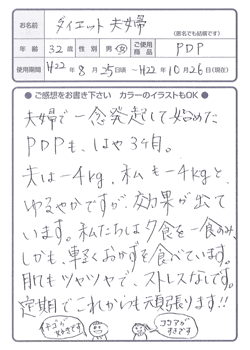 お名前 ダイエット夫婦
(匿名でも結構です)
年齢 32歳 性別 男・女 ご使用商品 PDP
使用期間 H22年8月25日頃〜H22年10月26日(現在)
●ご感想をお書き下さい カラーのイラストもOK●
夫婦で一念発起して始めた
PDPも、はや3ヶ月。
夫は-4kg、私も-4kgと、
ゆるやかですが、効果が出て
います。私たちは夕食を一食のみ、
しかも、軽くおかずを食べています。
肌もツヤツヤで、ストレスなしです。
定期でこれからも頑張ります!!
イチゴが好きです
ココアがすきです